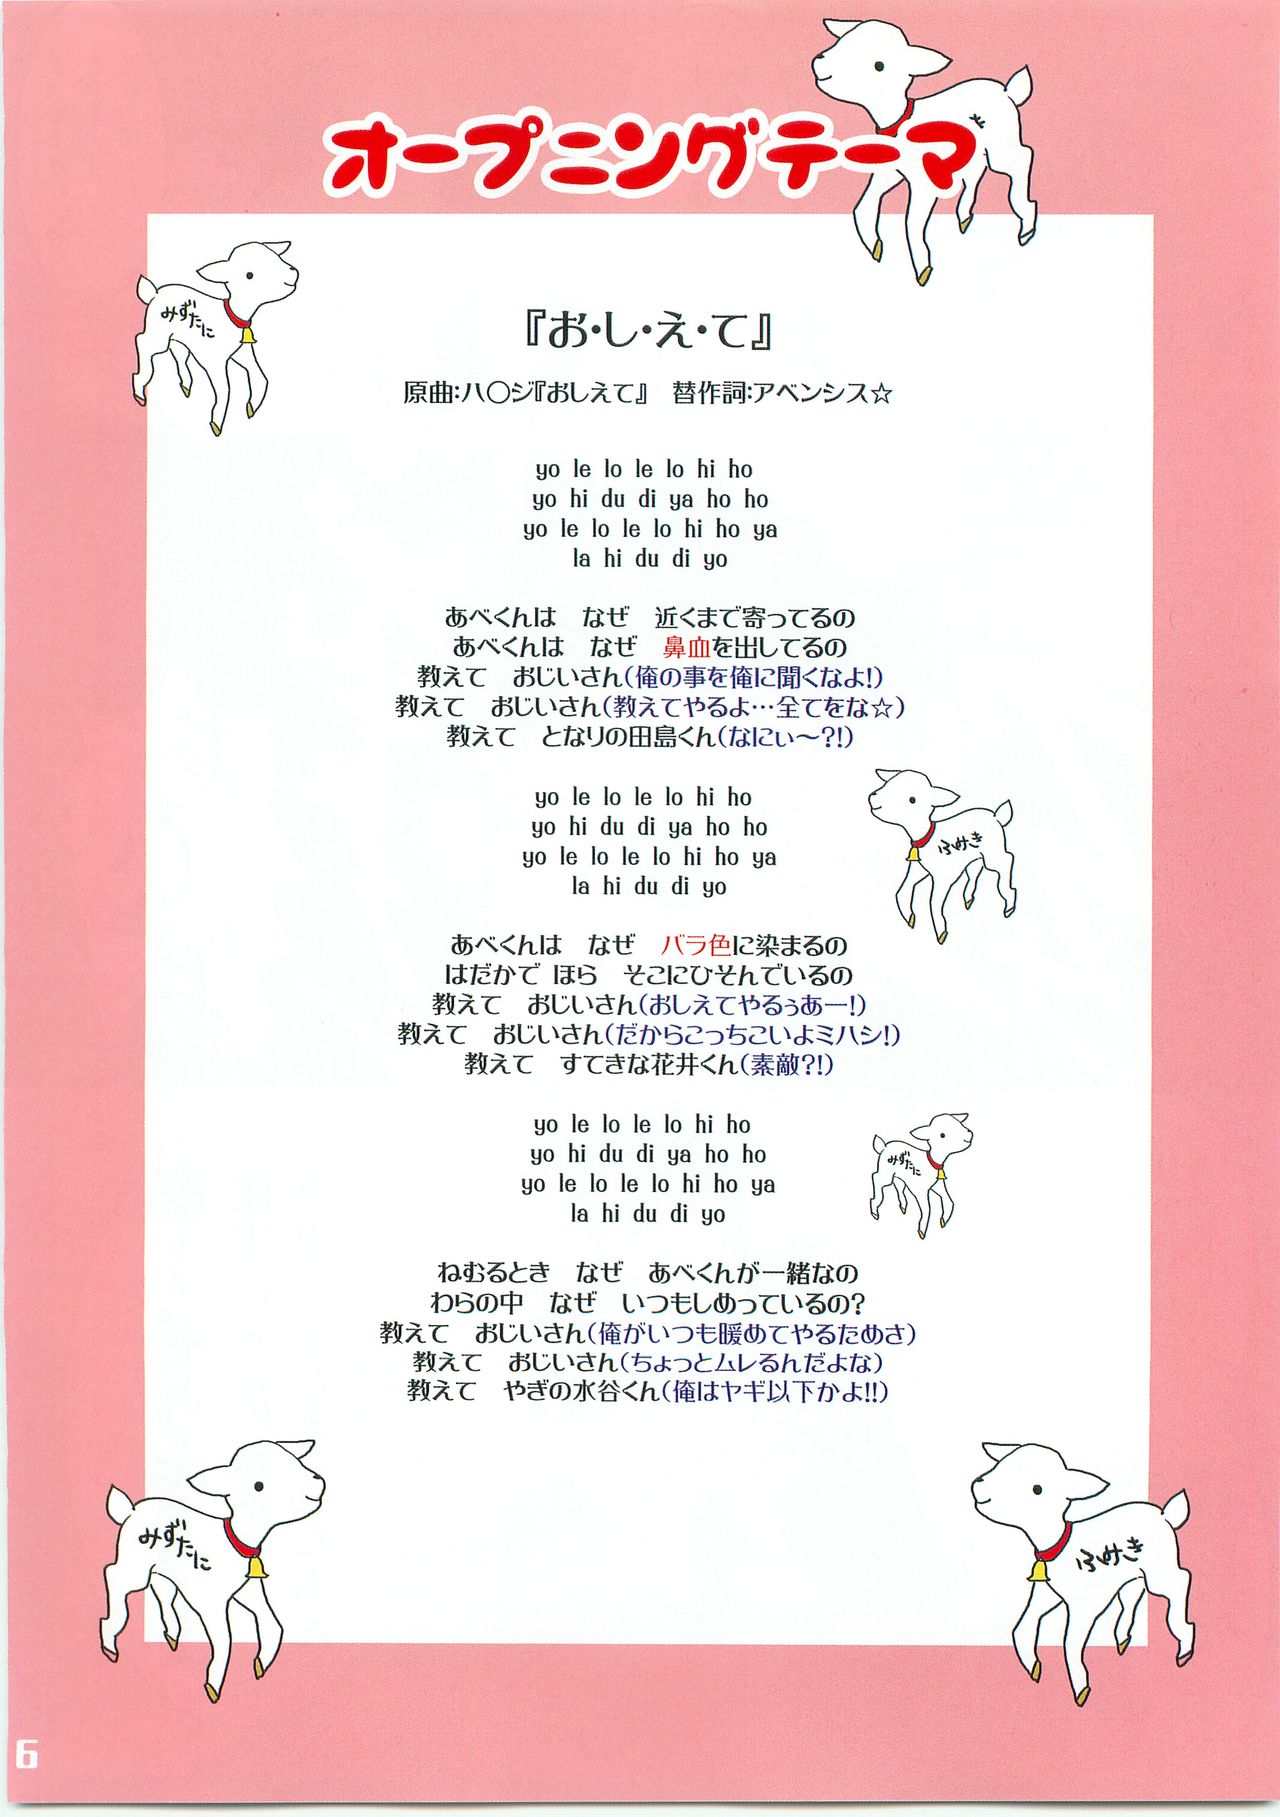 オープニングテーマ
みずたに
『お・し・え・て』
原曲:ハ〇ジ『おしえて』 替作詞:アベンシス☆
yo le lo le lo hi ho
yo hi du di ya ho ho
yo le lo le lo hi ho ya
la hi du di yo
あべくんは なぜ 近くまで寄ってるの
あべくんは なぜ 鼻血を出してるの
教えて おじいさん(俺の事を俺に聞くなよ!)
教えて おじいさん(教えてやるよ…全てをな☆)
教えて となりの田島くん(なにぃ～?!)
yo le lo le lo hi ho
yo hi du di ya ho ho
yo le lo le lo hi ho ya
la hi du di yo
ふみき
あべくんは なぜ バラ色に染まるの
はだかで ほら そこにひそんでいるの
教えて おじいさん(おしえてやるぅあー!)
教えて おじいさん(だからこっちこいよミハシ!)
教えて すてきな花井くん(素敵?!)
yo le lo le lo hi ho
yo hi du di ya ho ho
yo le lo le lo hi ho ya
la hi du di yo
みずたに
ねむるとき なぜ あべくんが一緒なの
わらの中 なぜ いつもしめっているの?
教えて おじいさん(俺がいつも暖めてやるためさ)
教えて おじいさん(ちょっとムレるんだよな)
教えて やぎの水谷くん(俺はヤギ以下かよ!!)
みずたに
ふみき
6